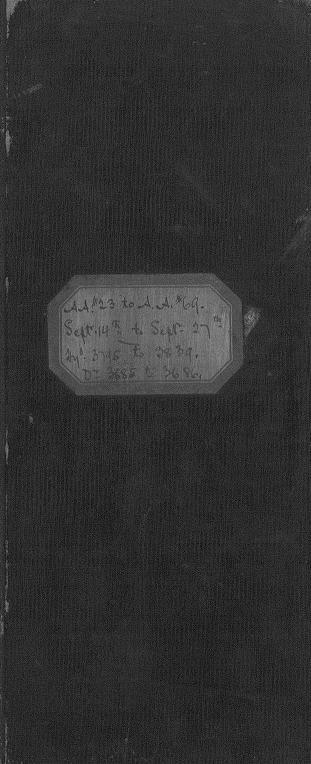 A.A. #23 to A.A. #69.
Sept. 14th to Sept. 27th
3795 to 3839.
Do 3685 to 3686.